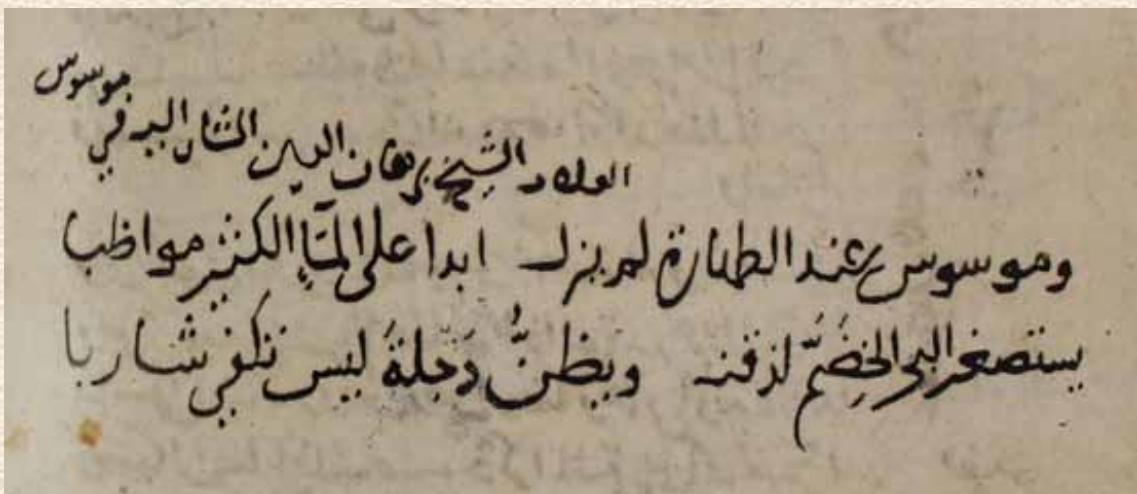 الشيخ برهان الدين البدر في
موسوس
وموسوس عند الطهارة لم يزل ابدا على المآ الكثير مواظبا
يستصغر البحر الخِضَمَّ لذقنه ويظنُّ دَجلةَ ليس تكفي شاربا